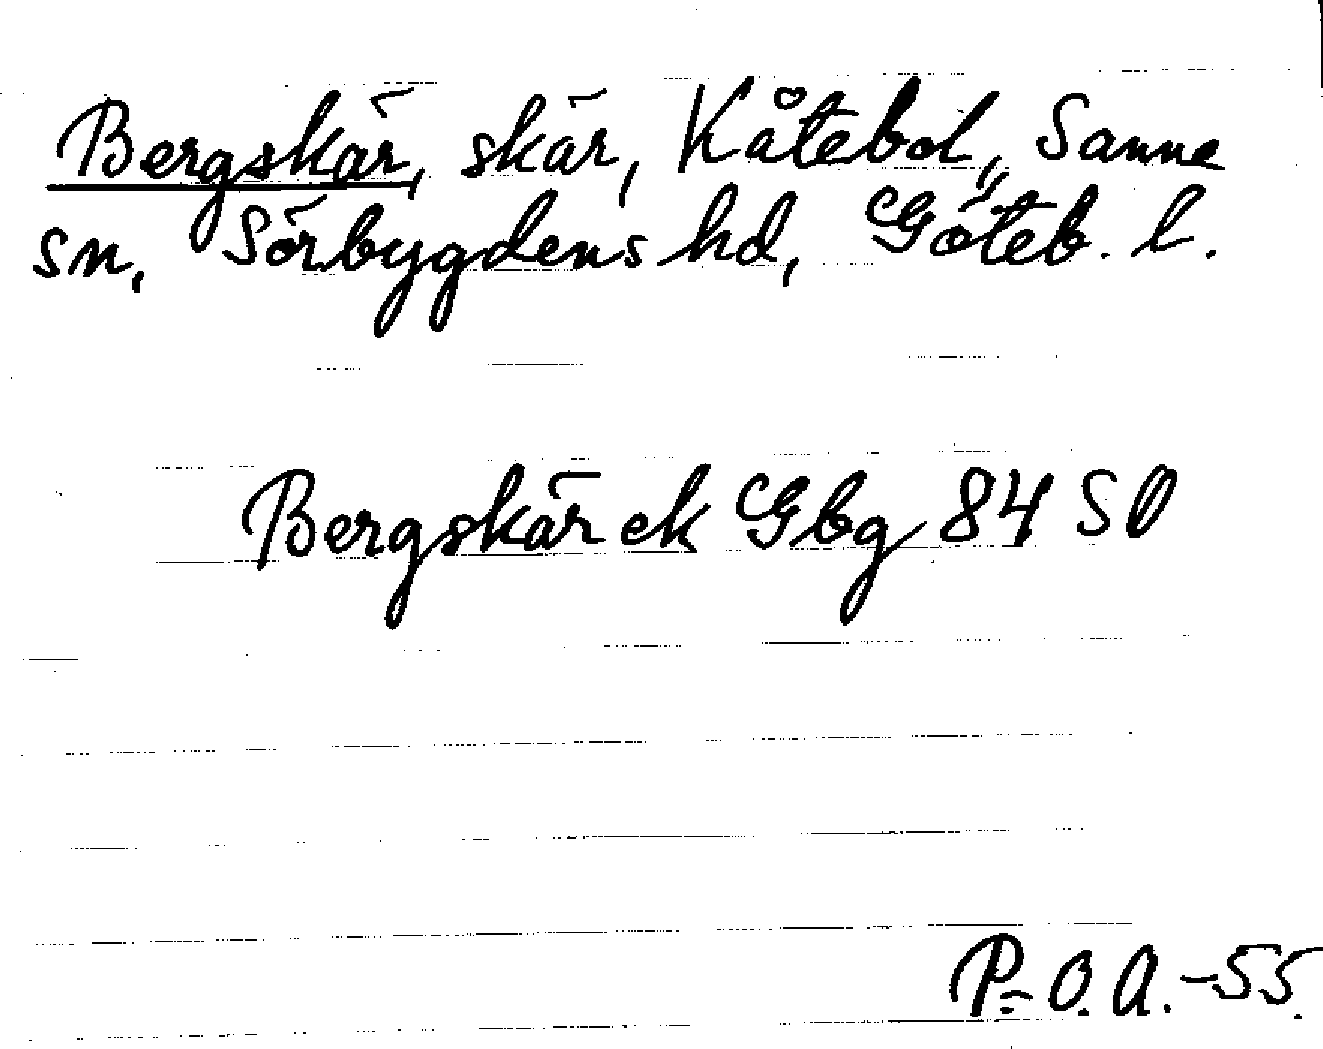 Bergskär, skär, Kåtebol, Sanne
sn, Sörbygdens hd, Göteb. l.
Bergskär ek Gbg 84 SO
P-O.A.-55.